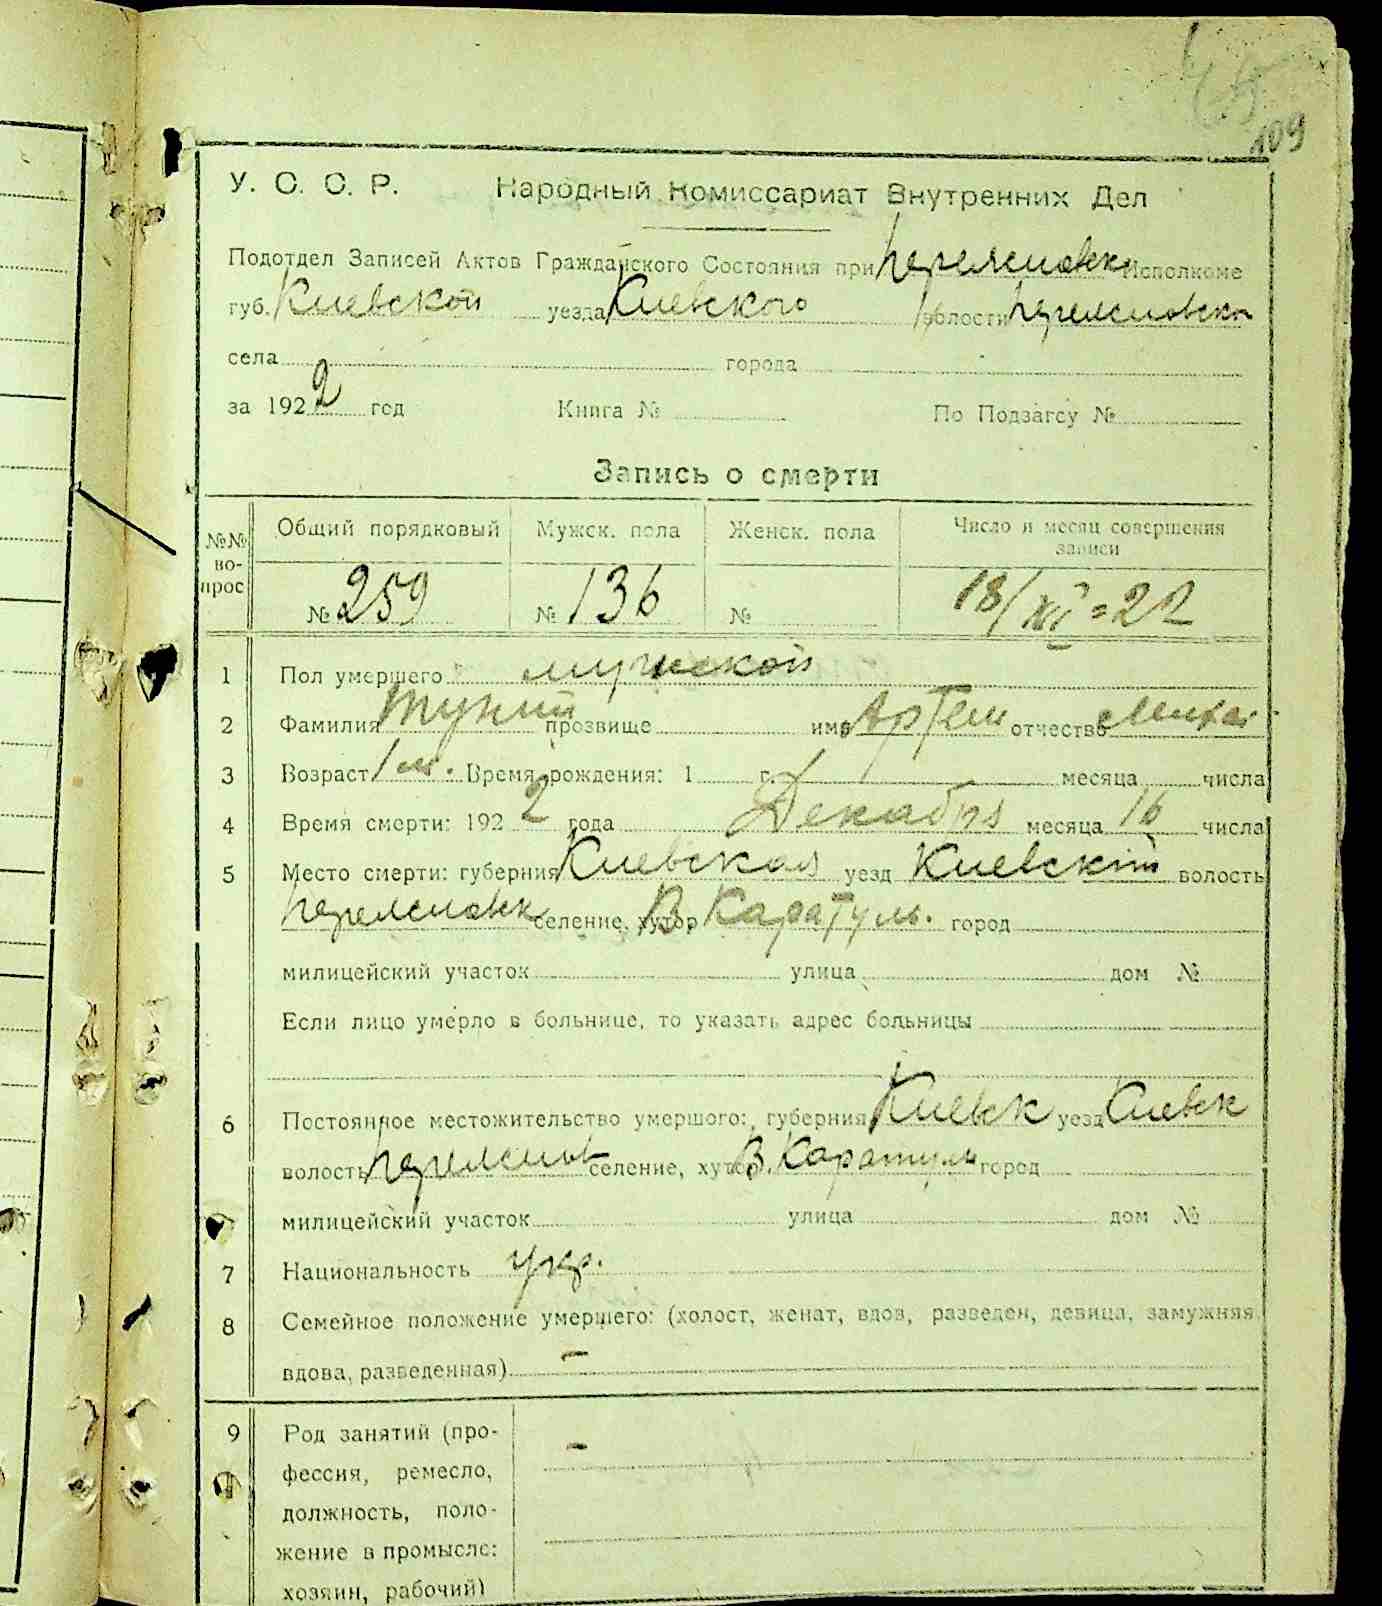 109
У. С. С. Р. Народный Комиссариат Внутренних Дел
Подотдел Записей Актов Гражданского Состояния при Исполкоме
губ. Киевской уезда Киевского волости
села города
за 1922 год Книга № По Подзагсу №
Запись о смерти
№№ вопрос Общий порядковый Мужск. пола Женск. пола Число и месяц совершения записи
№ 259 № 136 № 18/XII=22
1 Пол умершего мужской
2 Фамилия прозвище имя Артем отчество Михай
3 Возраст 1 м. Время рождения: 1 г. месяца числа
4 Время смерти: 1922 года Декабря месяца 16 числа
5 Место смерти: губерния Киевская уезд Киевский волость
селение, хутор В. Каратуль. город
милицейский участок улица дом №
Если лицо умерло в больнице, то указать адрес больницы
6 Постоянное местожительство умершого: губерния Киевск уезд Киевск
волость селение, хутор В. Каратуль город
милицейский участок улица дом №
7 Национальность укр.
8 Семейное положение умершего: (холост, женат, вдов, разведен, девица, замужняя
вдова, разведенная) –
9 Род занятий (про- –
фессия, ремесло,
должность, поло-
жение в промысле:
хозяин, рабочий)